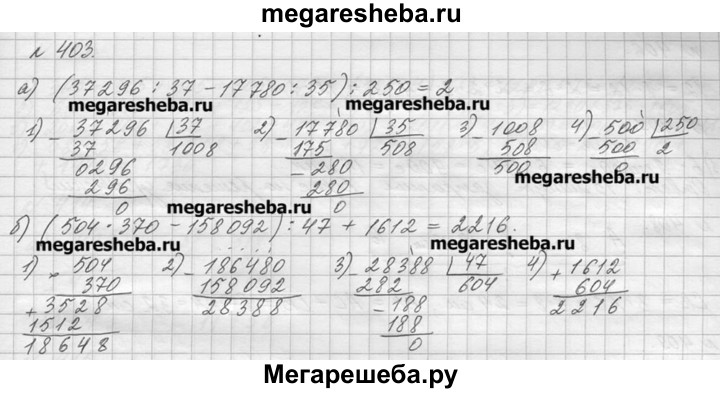 megaresheba.ru
№ 403.
а) (37296 : 37 - 17780 : 35) : 250 = 2
megaresheba.ru megaresheba.ru
1) - 37296 | 37 2) - 17780 | 35 3) - 1008 4) - 500 | 250
37 1008 175 508 508 500 2
0296 - 280 500 0
296 280 megaresheba.ru
0 0
megaresheba.ru
б) (504 · 370 - 158092) : 47 + 1612 = 2216.
megaresheba.ru megaresheba.ru
1) × 504 2) - 186480 3) - 28388 | 47 4) + 1612
370 158092 282 604 604
+ 3528 28388 - 188 2216
1512 188
18648 0
Мегарешеба.ру